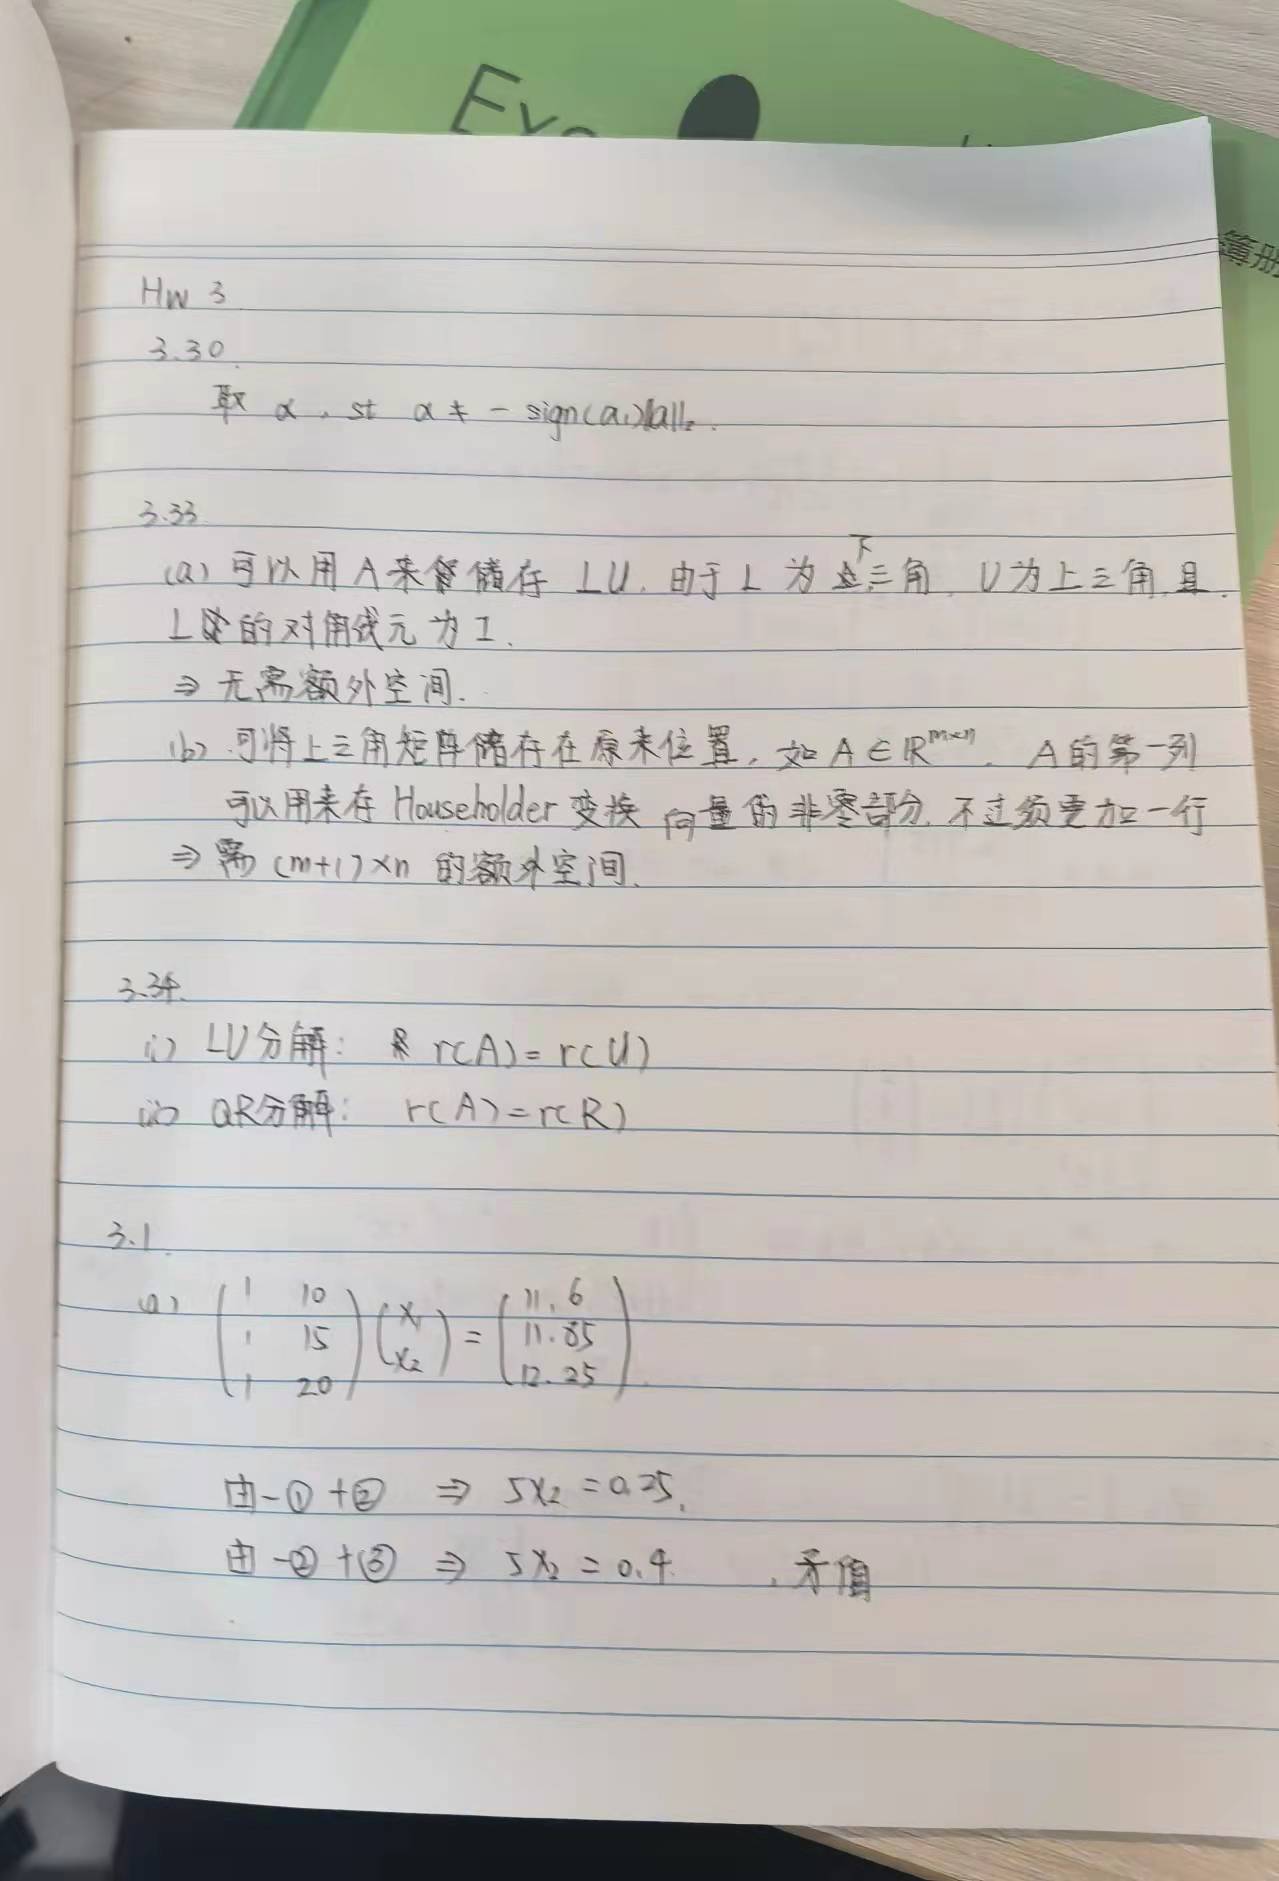 Hw 3
3.30.
取 α, st α ≠ - sign(a₁)‖a‖₂.
3.33.
(a) 可以用 A 来储存 LU. 由于 L 为下三角, U为上三角且.
L的对角线元为1.
⇒ 无需额外空间.
(b) 可将上三角矩阵储存在原来位置. 如 A∈ℝ^{m×n}. A的第一列
可以用来存 Householder 变换向量的非零部分, 不过须更加一行
⇒ 需 (m+1)×n 的额外空间.
3.34.
(i) LU分解: r(A)=r(U)
(ii) QR分解: r(A)=r(R)
3.1.
(a) (1 10; 1 15; 1 20)(x₁; x₂) = (11.6; 11.85; 12.25).
由-①+② ⇒ 5x₂=0.25,
由-②+③ ⇒ 5x₂=0.4. , 矛盾
簿册